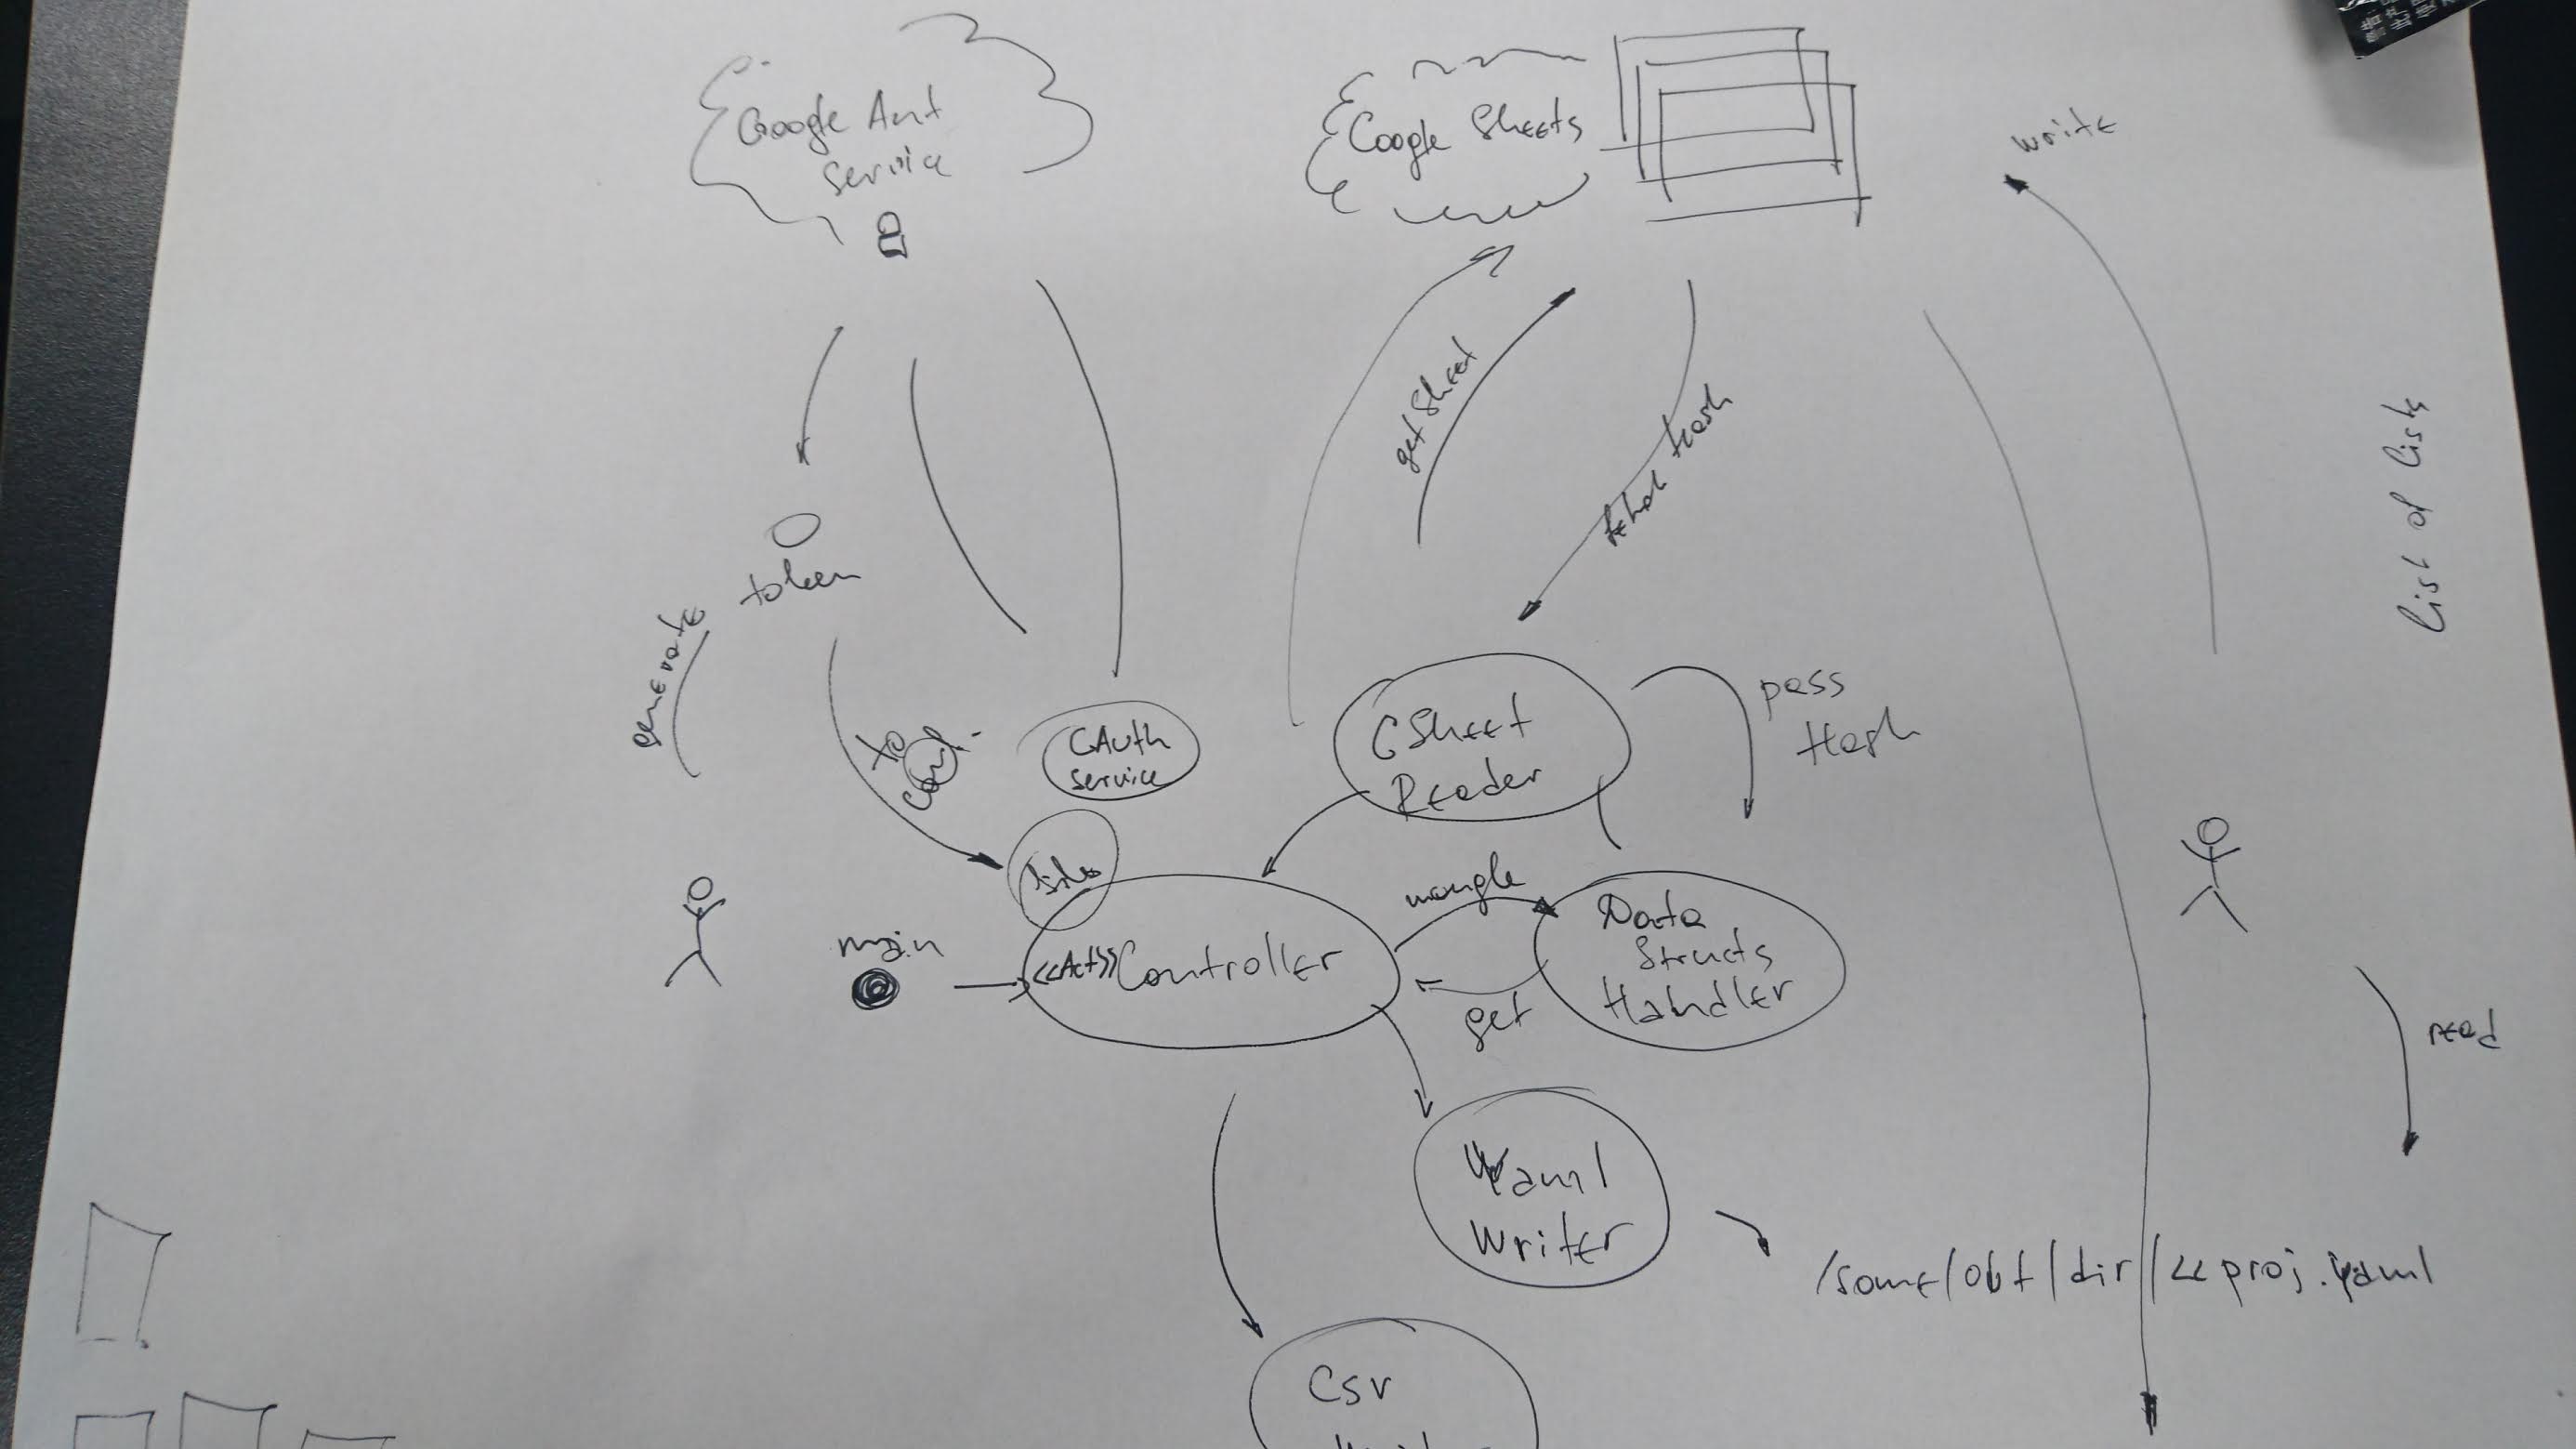 Google Aut
service
Google Sheets
write
getSheet
Hash
List of lists
token
generate
to
conf.
GAuth
service
GSheet
Reader
pass
Hash
main
<<Act>>Controller
mangle
get
Data
Structs
Handler
read
Yaml
Writer
/some/obt/dir/<<proj.yaml
Csv